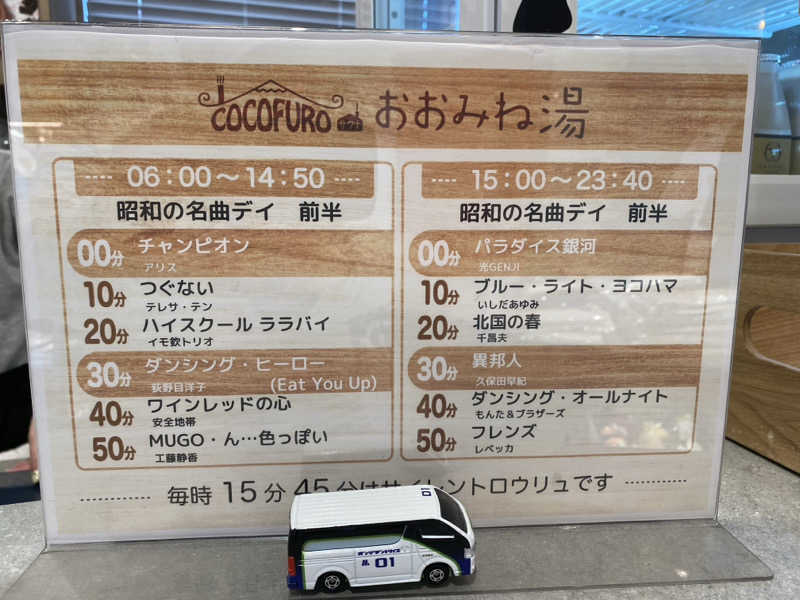 COCOFURO おおみね湯
06:00～14:50
昭和の名曲デイ 前半
00分 チャンピオン
アリス
10分 つぐない
テレサ・テン
20分 ハイスクール ララバイ
イモ欽トリオ
30分 ダンシング・ヒーロー
荻野目洋子 (Eat You Up)
40分 ワインレッドの心
安全地帯
50分 MUGO・ん…色っぽい
工藤静香
15:00～23:40
昭和の名曲デイ 前半
00分 パラダイス銀河
光GENJI
10分 ブルー・ライト・ヨコハマ
いしだあゆみ
20分 北国の春
千昌夫
30分 異邦人
久保田早紀
40分 ダンシング・オールナイト
もんた&ブラザーズ
50分 フレンズ
レベッカ
毎時 15分 45分はサイレントロウリュです
01
01